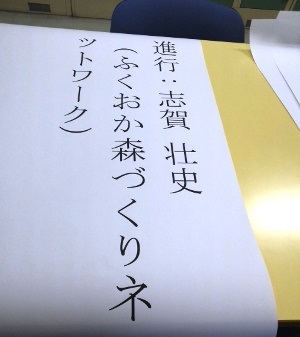 進行：志賀 壮史
（ふくおか森づくりネ
ットワーク）